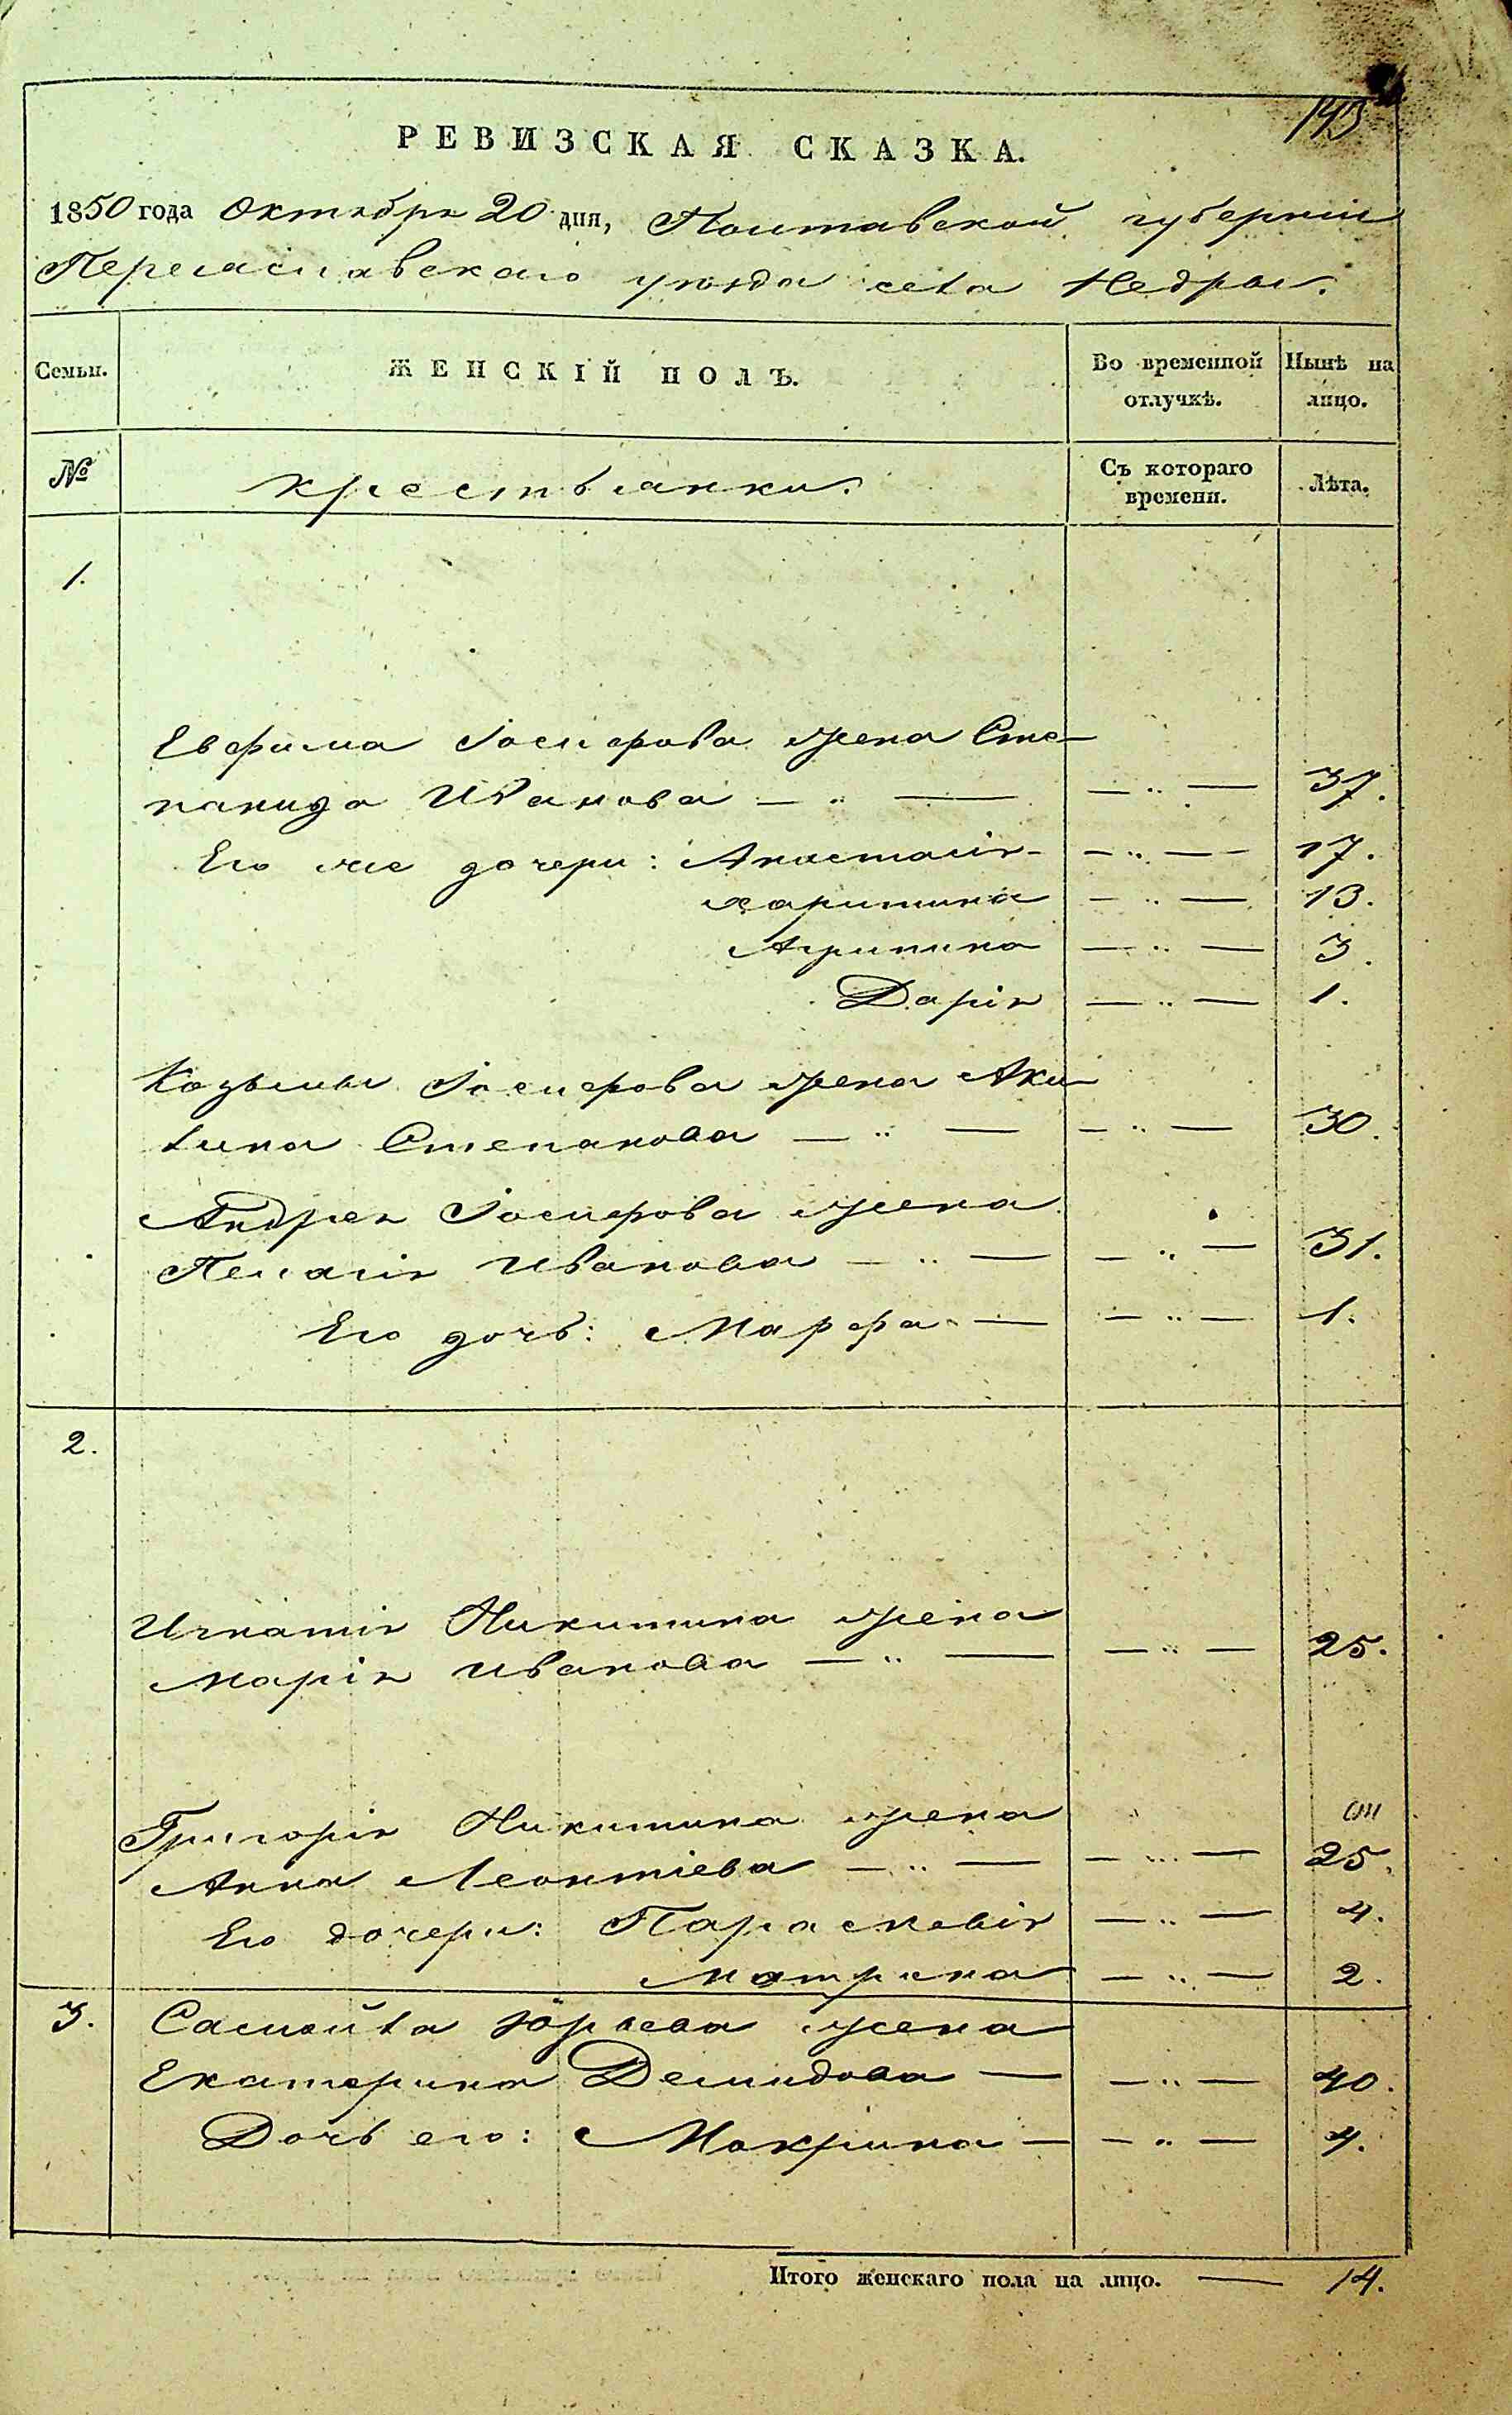 143
РЕВИЗСКАЯ СКАЗКА.
1850 года Октября 20 дня, Полтавской губернии
Переяславскаго уезда села Недры.
Семьи. ЖЕНСКІЙ ПОЛЪ. Во временной отлучкѣ. Нынѣ на лицо.
№ крестьянки. Съ котораго времени. Лѣта.
1.
Евфима Іосифова жена Сте-
панида Иванова — „ — — „ — 37.
Его же дочери: Анастасія — „ — 17.
Харитина — „ — 13.
Агрипина — „ — 3.
Дарія — „ — 1.
Козьмы Іосифова жена Аки-
лина Степанова — „ — — „ — 30.
Андрея Іосифова жена
Пелагія Иванова — „ — — „ — 31.
Его дочь: Марфа — — „ — 1.
2.
Игнатія Никитина жена
Марія Иванова — „ — — „ — 25.
Григорія Никитина жена
Анна Леонтіева — „ — — „ — 25.
Его дочери: Параскевія — „ — 4.
Матрена — „ — 2.
3. Самойла Юрьева жена
Екатерина Демидова — — „ — 40.
Дочь его: Макрина — — „ — 4.
Итого женскаго пола на лицо. — 14.